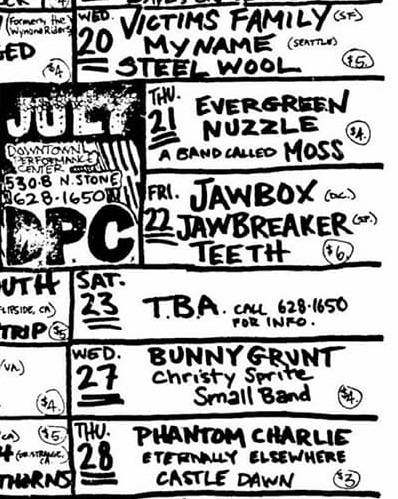 (formerly the
Wynona Riders)
$4.
WED. 20
VICTIMS FAMILY (SF.)
MY NAME (SEATTLE)
STEEL WOOL $5.
JULY
DOWNTOWN
PERFORMANCE
CENTER
530·B N. STONE
628·1650
DPC
THU. 21
EVERGREEN
NUZZLE $4.
A BAND CALLED MOSS
FRI. 22
JAWBOX (D.C.)
JAWBREAKER (SF.)
TEETH $6.
UTH
FLIPSIDE, CA)
TRIP $5
SAT. 23
T.B.A. CALL 628·1650
FOR INFO.
(VA.)
$4.
WED. 27
BUNNYGRUNT
Christy Sprite
Small Band $4.
CA) $5.
THORNS
THU. 28
PHANTOM CHARLIE
ETERNALLY ELSEWHERE
CASTLE DAWN $3